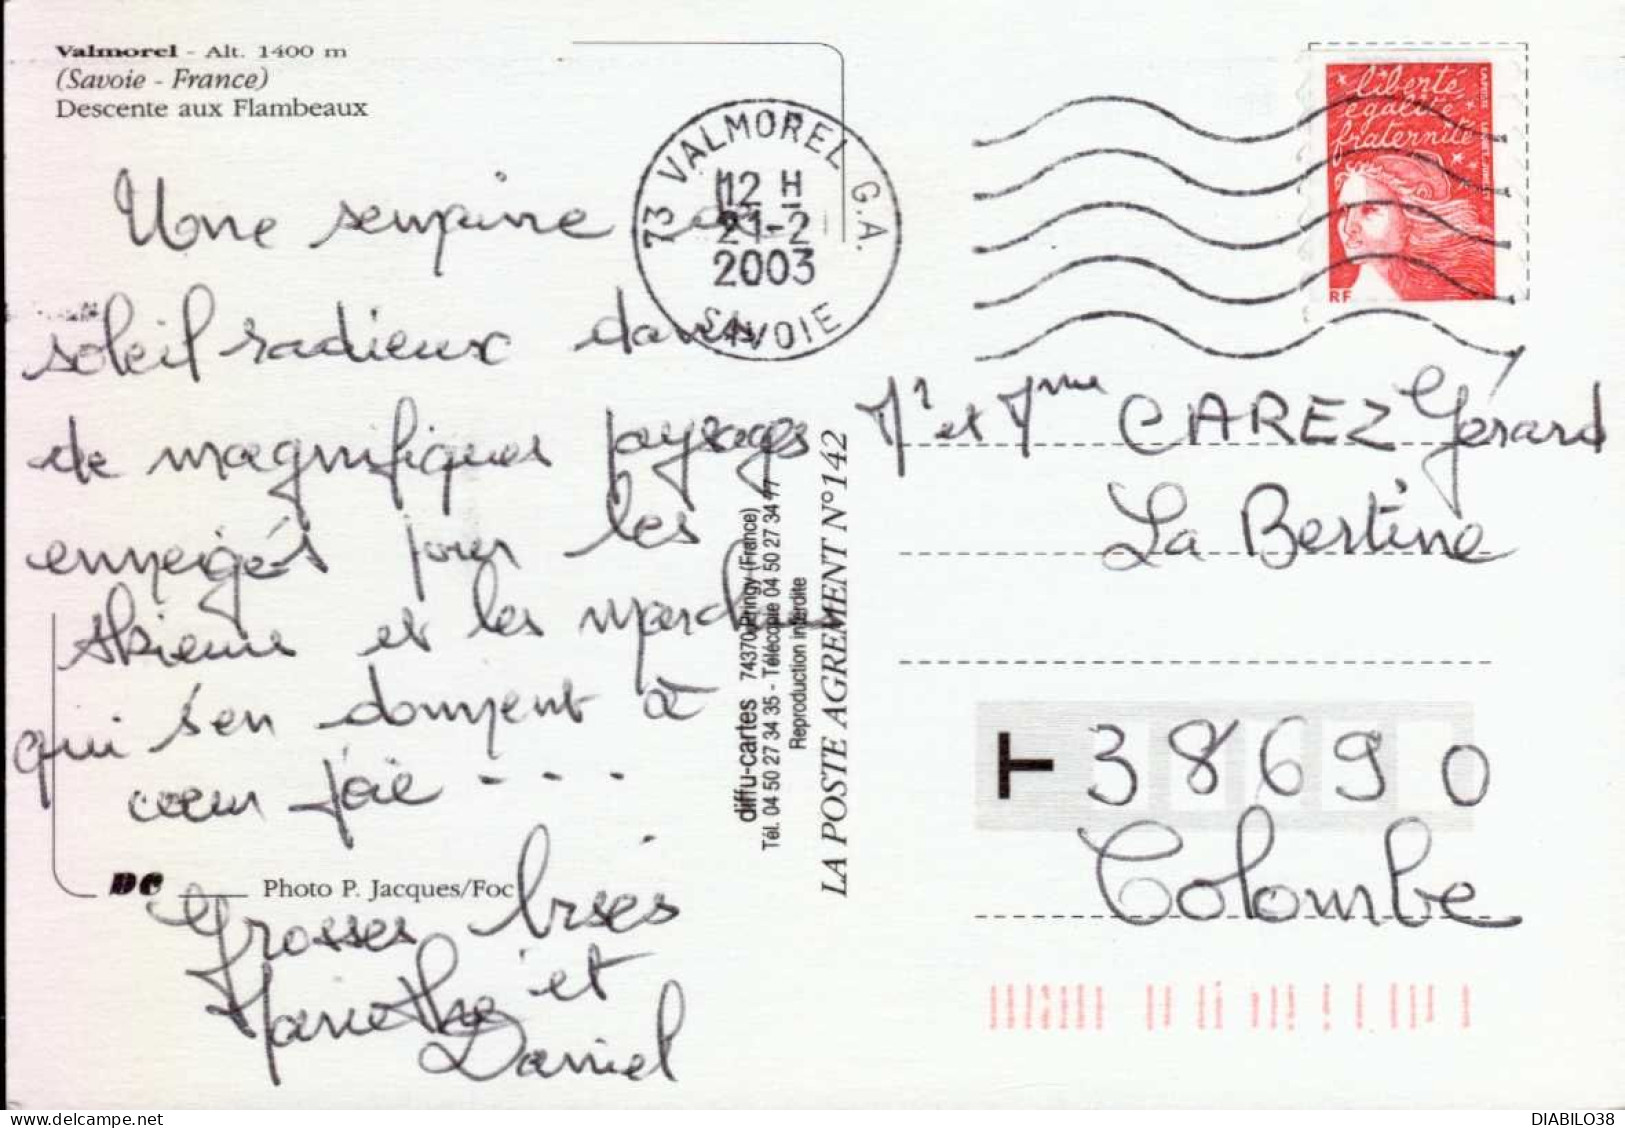 Valmorel - Alt. 1400 m
(Savoie - France)
Descente aux Flambeaux
73 VALMOREL G.A.
12 H
21-2
2003
SAVOIE
liberté
égalité
fraternité
RF
Une semaine de
soleil radieux dans
de magnifiques paysages
enneigés pour les
skieurs et les marcheurs
qui s'en donnent à
cœur joie - - -
Grosses bises
Marithé et
Daniel
DC Photo P. Jacques/Foc
diffu-cartes 74370 Pringy (France)
Tél. 04 50 27 34 35 - Télécopie 04 50 27 34 77
Reproduction interdite
LA POSTE AGREMENT N°142
Mr et Mme CAREZ Gérard
La Bertine
T 38690
Colombe
DIABILO38